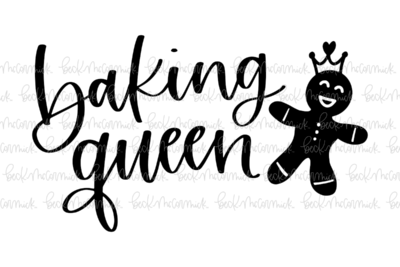 baking
queen